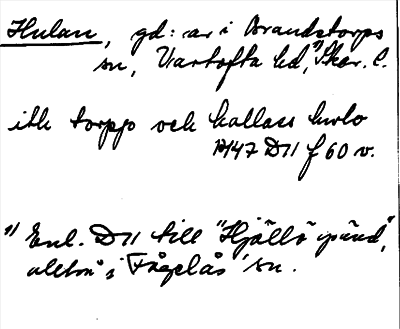 Hulan, gd: ar i Brandstorps
sn, Vartofta hd,¹⁾ Skar. l.
itt torpp och kallass hwlo
1747 D11 f 60 v.
¹⁾ Enl. D11 till "Hjällö gäned",
i Fågelås sn.